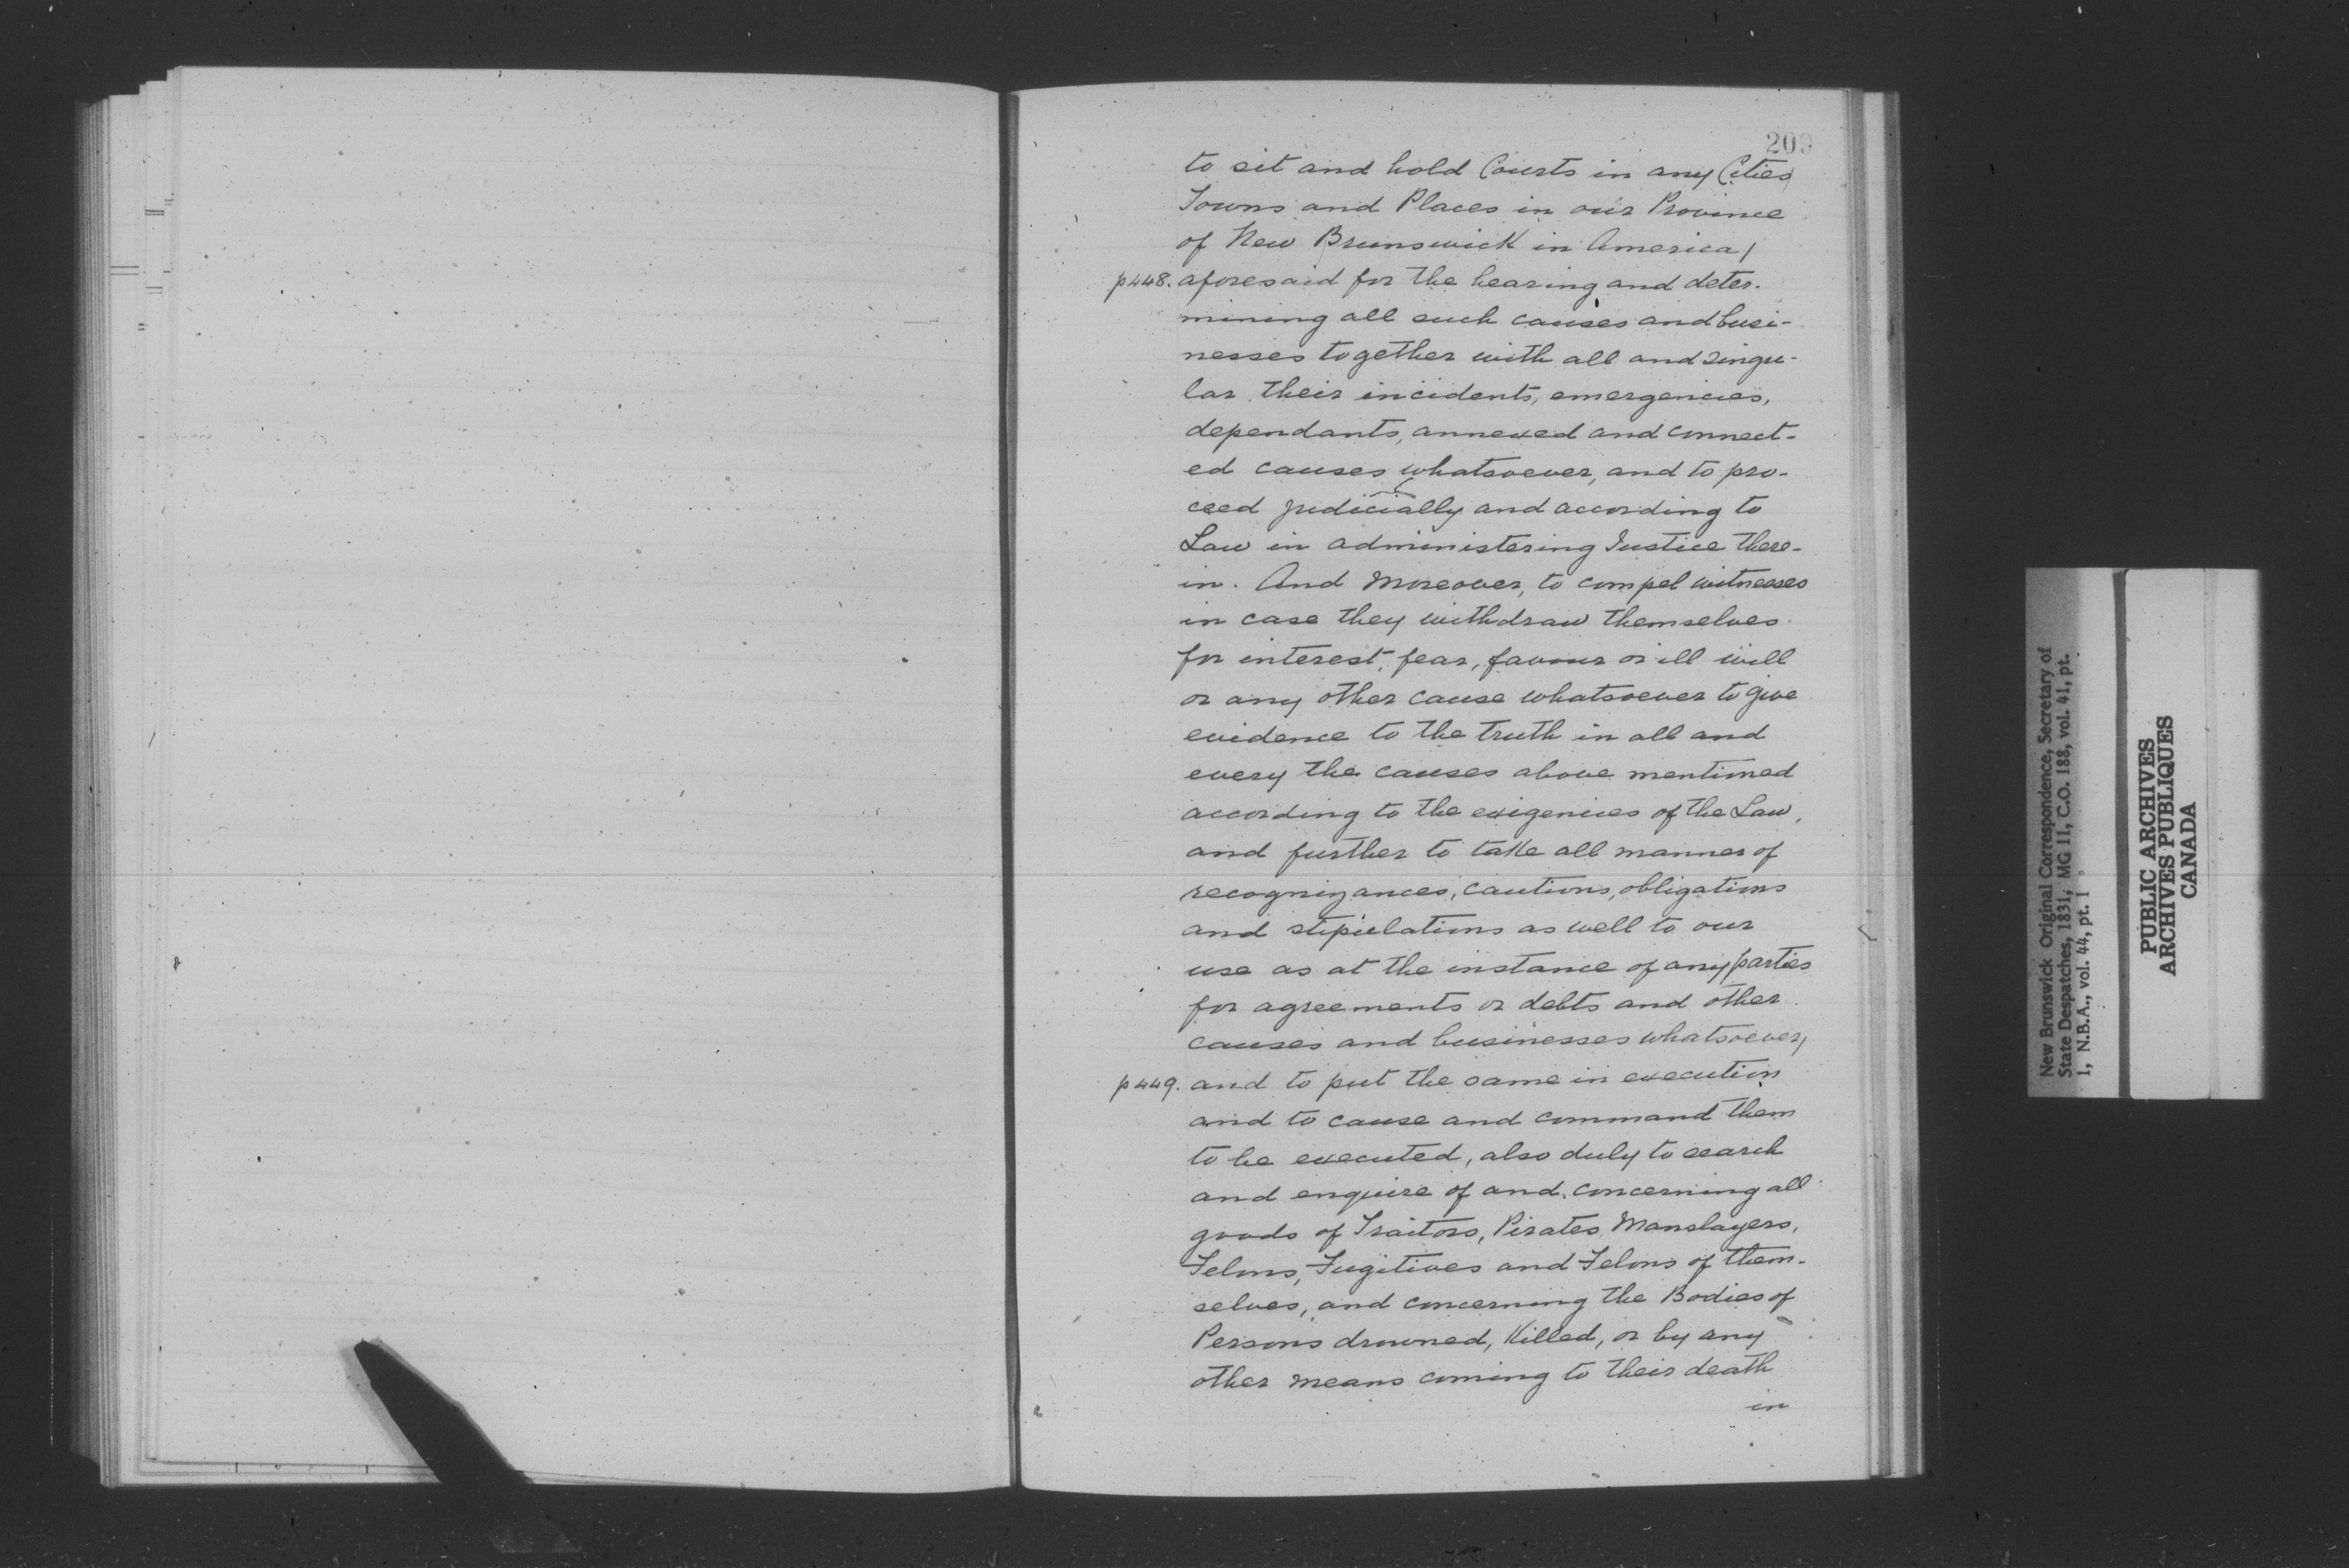 209
to sit and hold Courts in any Cities
Towns and Places in our Province
of New Brunswick in America/
p448. aforesaid for the hearing and deter-
mining all such causes and busi-
nesses together with all and singu-
lar their incidents, emergencies,
dependants, annexed and connect-
ed causes whatsoever, and to pro-
ceed judicially and according to
Law in administering Justice there-
in. And moreover, to compel witnesses
in case they withdraw themselves
for interest, fear, favour or ill will
or any other cause whatsoever to give
evidence to the truth in all and
every the causes above mentioned
according to the exigencies of the Law,
and further to take all manner of
recognizances, cautions, obligations
and stipulations as well to our
use as at the instance of any parties
for agreements or debts and other
causes and businesses whatsoever/
p449. and to put the same in execution
and to cause and command them
to be executed, also duly to search
and enquire of and concerning all
goods of Traitors, Pirates, Manslayers,
Felons, Fugitives and Felons of them-
selves, and concerning the Bodies of
Persons drowned, Killed, or by any
other means coming to their death
in
New Brunswick Original Correspondence, Secretary of
State Despatches, 1831, MG 11, C.O. 188, vol. 41, pt.
1, N.B.A., vol. 44, pt. 1
PUBLIC ARCHIVES
ARCHIVES PUBLIQUES
CANADA